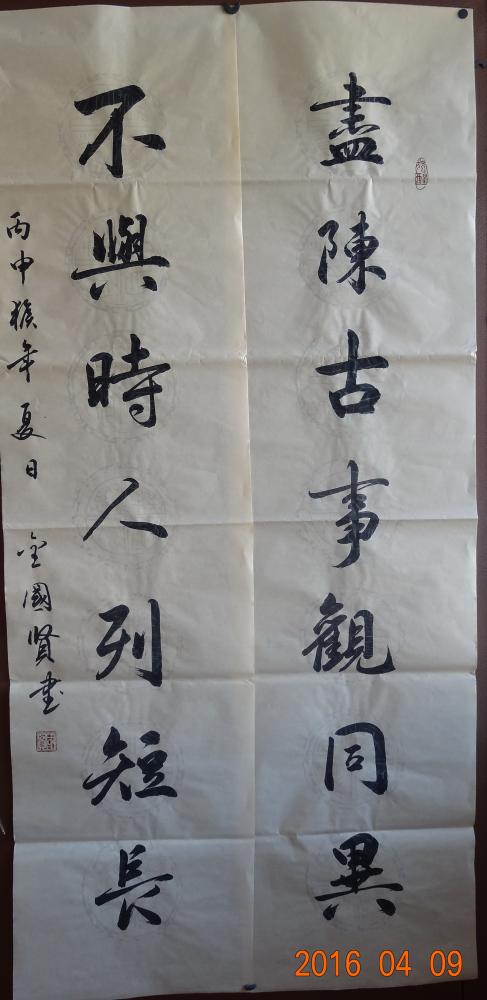 盡陳古事觀同異
不與時人列短長
丙申猴年夏日 金國賢書
2016 04 09